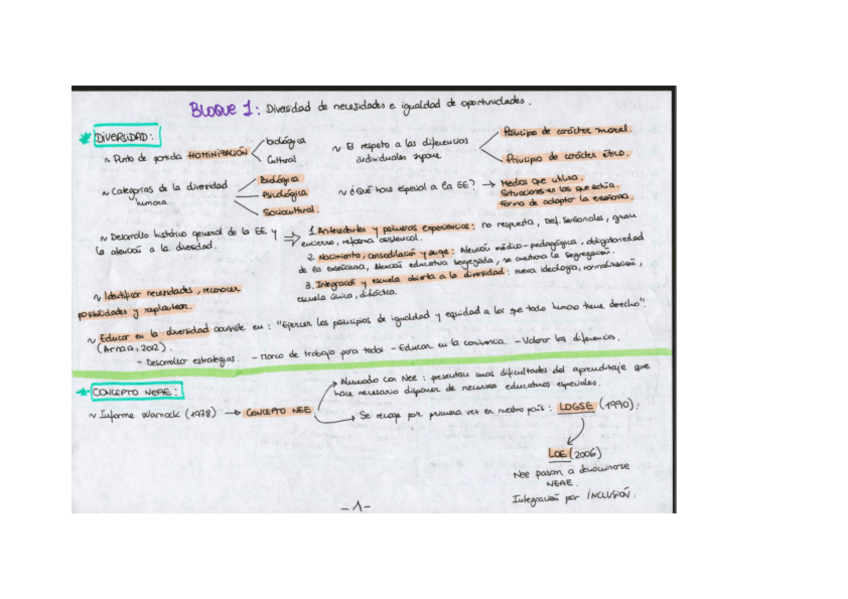 BLOQUE 1: Diversidad de necesidades e igualdad de oportunidades.
* DIVERSIDAD:
~ Punto de partida HOMINIZACIÓN
biológica
Cultural
~ El respeto a las diferencias
individuales supone
Principio de carácter moral.
Principio de carácter ético.
~ Categorías de la diversidad
humana
Biológica
Psicológica
Sociocultural.
~ ¿Qué hace especial a la EE? →
Medios que utiliza.
Situaciones en las que actúa.
Forma de adaptar la enseñanza.
~ Desarrollo histórico general de la EE y
la atención a la diversidad.
1. Antecedentes y primeras experiencias: no respuesta, Def. sensoriales, gran
encierro, reforma asistencial.
2. Nacimiento, consolidación y auge: Atención médico-pedagógica, obligatoriedad
de la enseñanza, Atención educativa segregada, se cuestiona la segregación.
3. Integración y escuela abierta a la diversidad: nueva ideología, normalización,
escuela única, didáctica.
~ Identificar necesidades, reconocer
posibilidades y replantear.
~ Educar en la diversidad consiste en: "Ejercer los principios de igualdad y equidad a los que todo humano tiene derecho".
(Arnaiz, 2012).
- Desarrollar estrategias. - Marco de trabajo para todos - Educar en la convivencia. - Valorar las diferencias.
* CONCEPTO NEAE:
~ Informe Warnock (1978) → CONCEPTO NEE
Alumnado con Nee: presentan unas dificultades del aprendizaje que
hace necesario disponer de recursos educativos especiales.
Se recoge por primera vez en nuestro país: LOGSE (1990).
LOE (2006)
Nee pasan a denominarse
NEAE.
Integración por INCLUSIÓN.
-1-